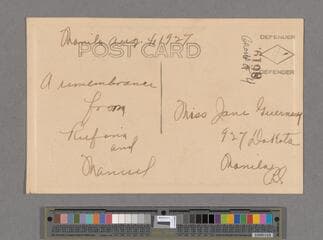 Manila Aug. 4, 1927
POST CARD
DEFENDER
DEFENDER
A remembrance
from
Rufina
and
Manuel
Miss Jane Guernsey
927 Dakota
Manila,
P.I.